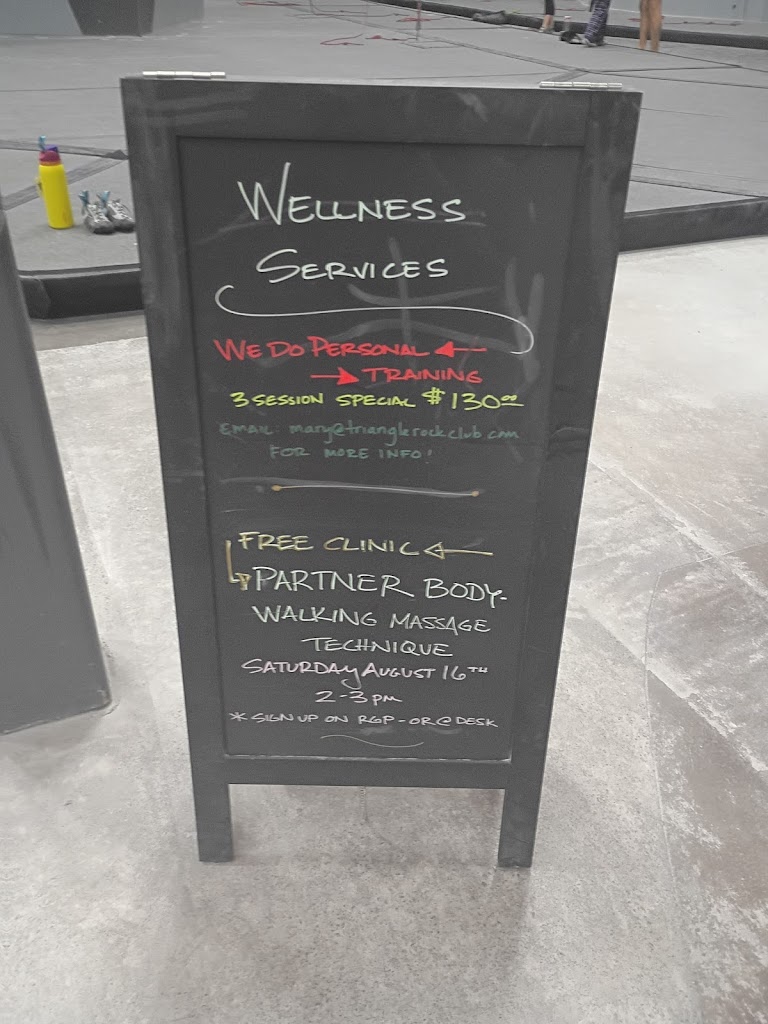 WELLNESS
SERVICES
WE DO PERSONAL
TRAINING
3 SESSION SPECIAL $130.00
EMAIL: mary@trianglerockclub.com
FOR MORE INFO!
FREE CLINIC
PARTNER BODY-
WALKING MASSAGE
TECHNIQUE
SATURDAY AUGUST 16TH
2-3 PM
* SIGN UP ON RGP - OR @ DESK